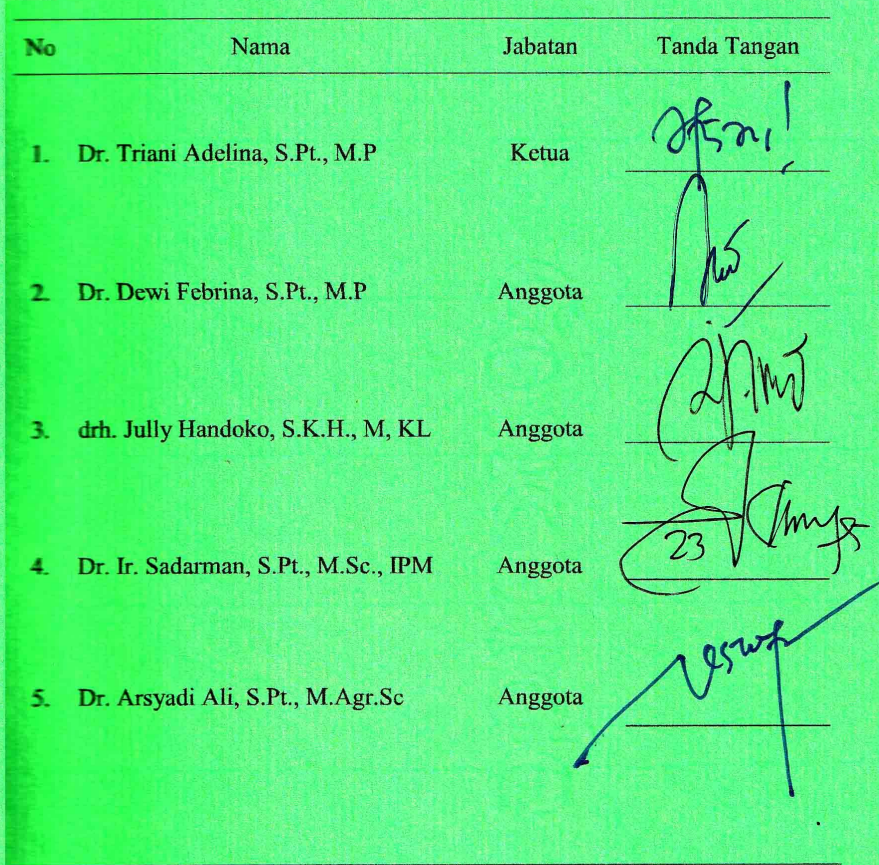 No Nama Jabatan Tanda Tangan
1. Dr. Triani Adelina, S.Pt., M.P Ketua
2. Dr. Dewi Febrina, S.Pt., M.P Anggota
3. drh. Jully Handoko, S.K.H., M, KL Anggota
23
4. Dr. Ir. Sadarman, S.Pt., M.Sc., IPM Anggota
5. Dr. Arsyadi Ali, S.Pt., M.Agr.Sc Anggota